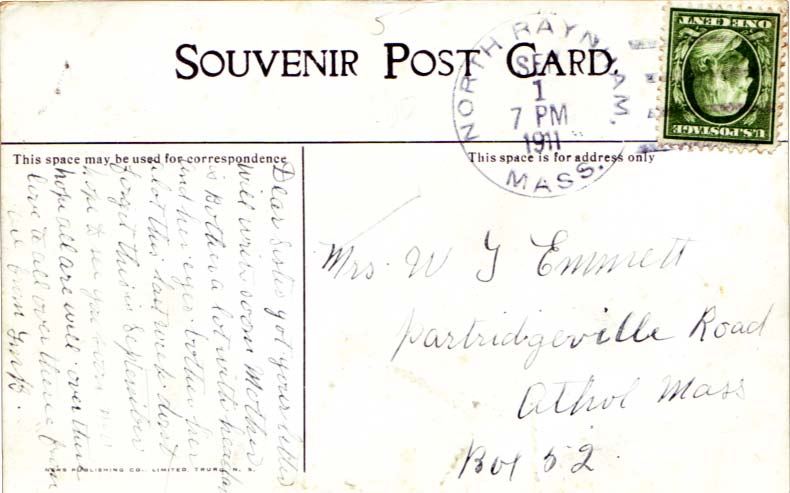 SOUVENIR POST CARD.
NORTH RAYNHAM.
SEP
1
7 PM
1911
MASS.
ONE CENT
U.S. POSTAGE
This space may be used for correspondence
This space is for address only
Dear Sister got your letter
will write soon Mother
is Bothered a lot with
and her eyes bother her
alot this last week dont
forget this is September
hope to see you soon
hope all are well over there
love to all over there from
from
Mrs. W J Emmett
Partridgeville Road
Athol Mass
Box 52.
NEWS PUBLISHING CO., LIMITED, TRURO, N. S.